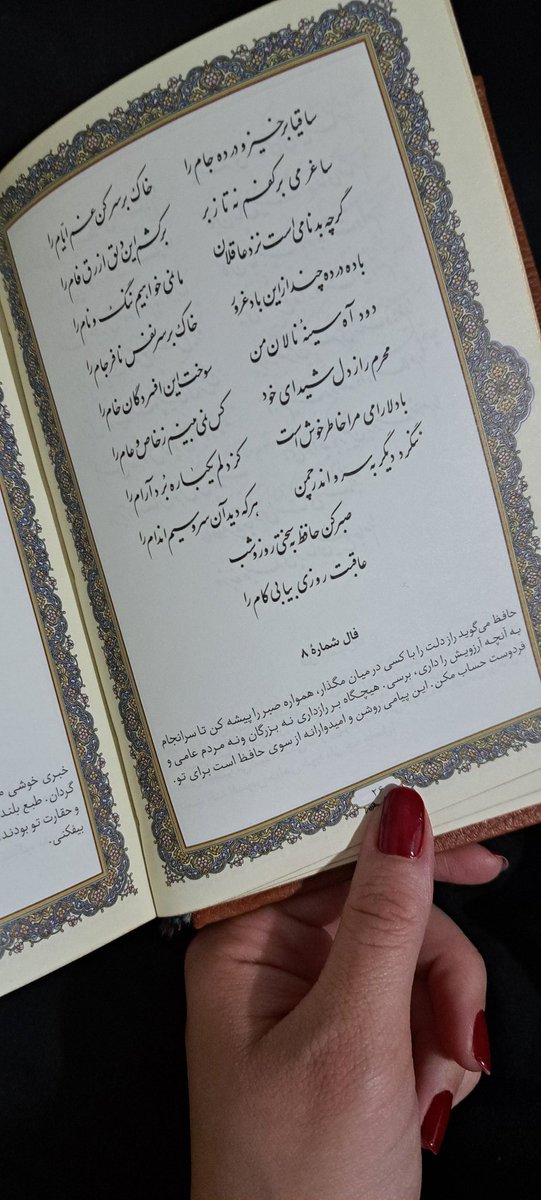 ساقیا برخیز و درده جام را خاک بر سر کن غم ایام را
ساغر می بر کفم نه تا ز بر برکشم این دلق ازرق فام را
گرچه بدنامی است نزد عاقلان ما نمی خواهیم ننگ و نام را
باده درده چند ازین باد غرور خاک بر سر نفس نافرجام را
دود آه سینهٔ نالان من سوخت این افسردگان خام را
محرم راز دل شیدای خود کس نمی بینم ز خاص و عام را
با دلارامی مرا خاطر خوش است کز دلم یکباره برد آرام را
ننگرد دیگر به سرو اندر چمن هر که دید آن سرو سیم اندام را
صبر کن حافظ به سختی روز و شب
عاقبت روزی بیابی کام را
فال شمارهٔ ۸
حافظ می‌گوید راز دلت را با کسی در میان مگذار، همواره صبر را پیشه کن تا سرانجام
به آنچه آرزویش را داری، برسی. هیچگاه بر رازداری نه بزرگان و نه مردم عامی و
فرودست حساب مکن. این پیامی روشن و امیدوارانه از سوی حافظ است برای تو.
خبری خوشی
گردان. طبع بلند
و حقارت تو بودند
بیفکنی.